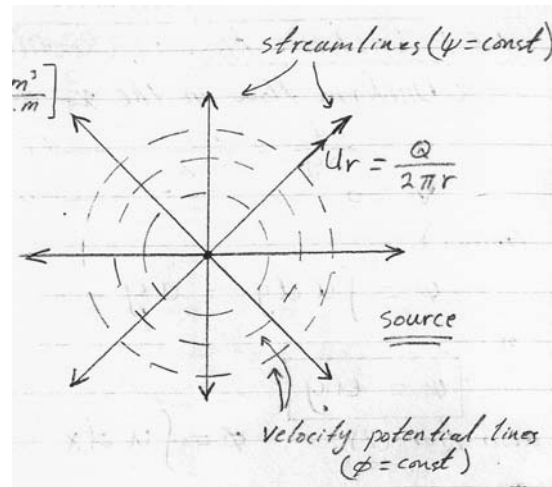 streamlines (ψ=const)
m³
.m]
Ur = Q
2πr
source
velocity potential lines
(φ=const)